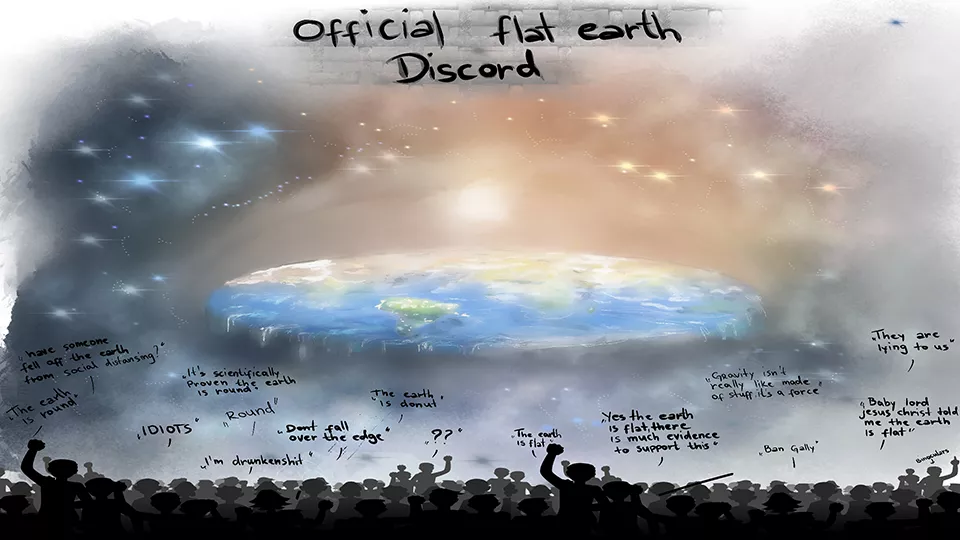 Official flat earth
Discord
„have someone
fell off the earth
from social distansing?"
„The earth
is round"
„It's scientifically
proven the earth
is round"
„IDIOTS"
„Round"
„I'm drunkenshit"
„Dont fall
over the edge"
„The earth
is donut"
„??"
„The earth
is flat"
„Yes the earth
is flat, there
is much evidence
to support this"
„Gravity isn't
really like made
of stuff its a force"
„Ban Gally"
„They are
lying to us"
„Baby lord
jesus christ told
me the earth
is flat"
Binoculars